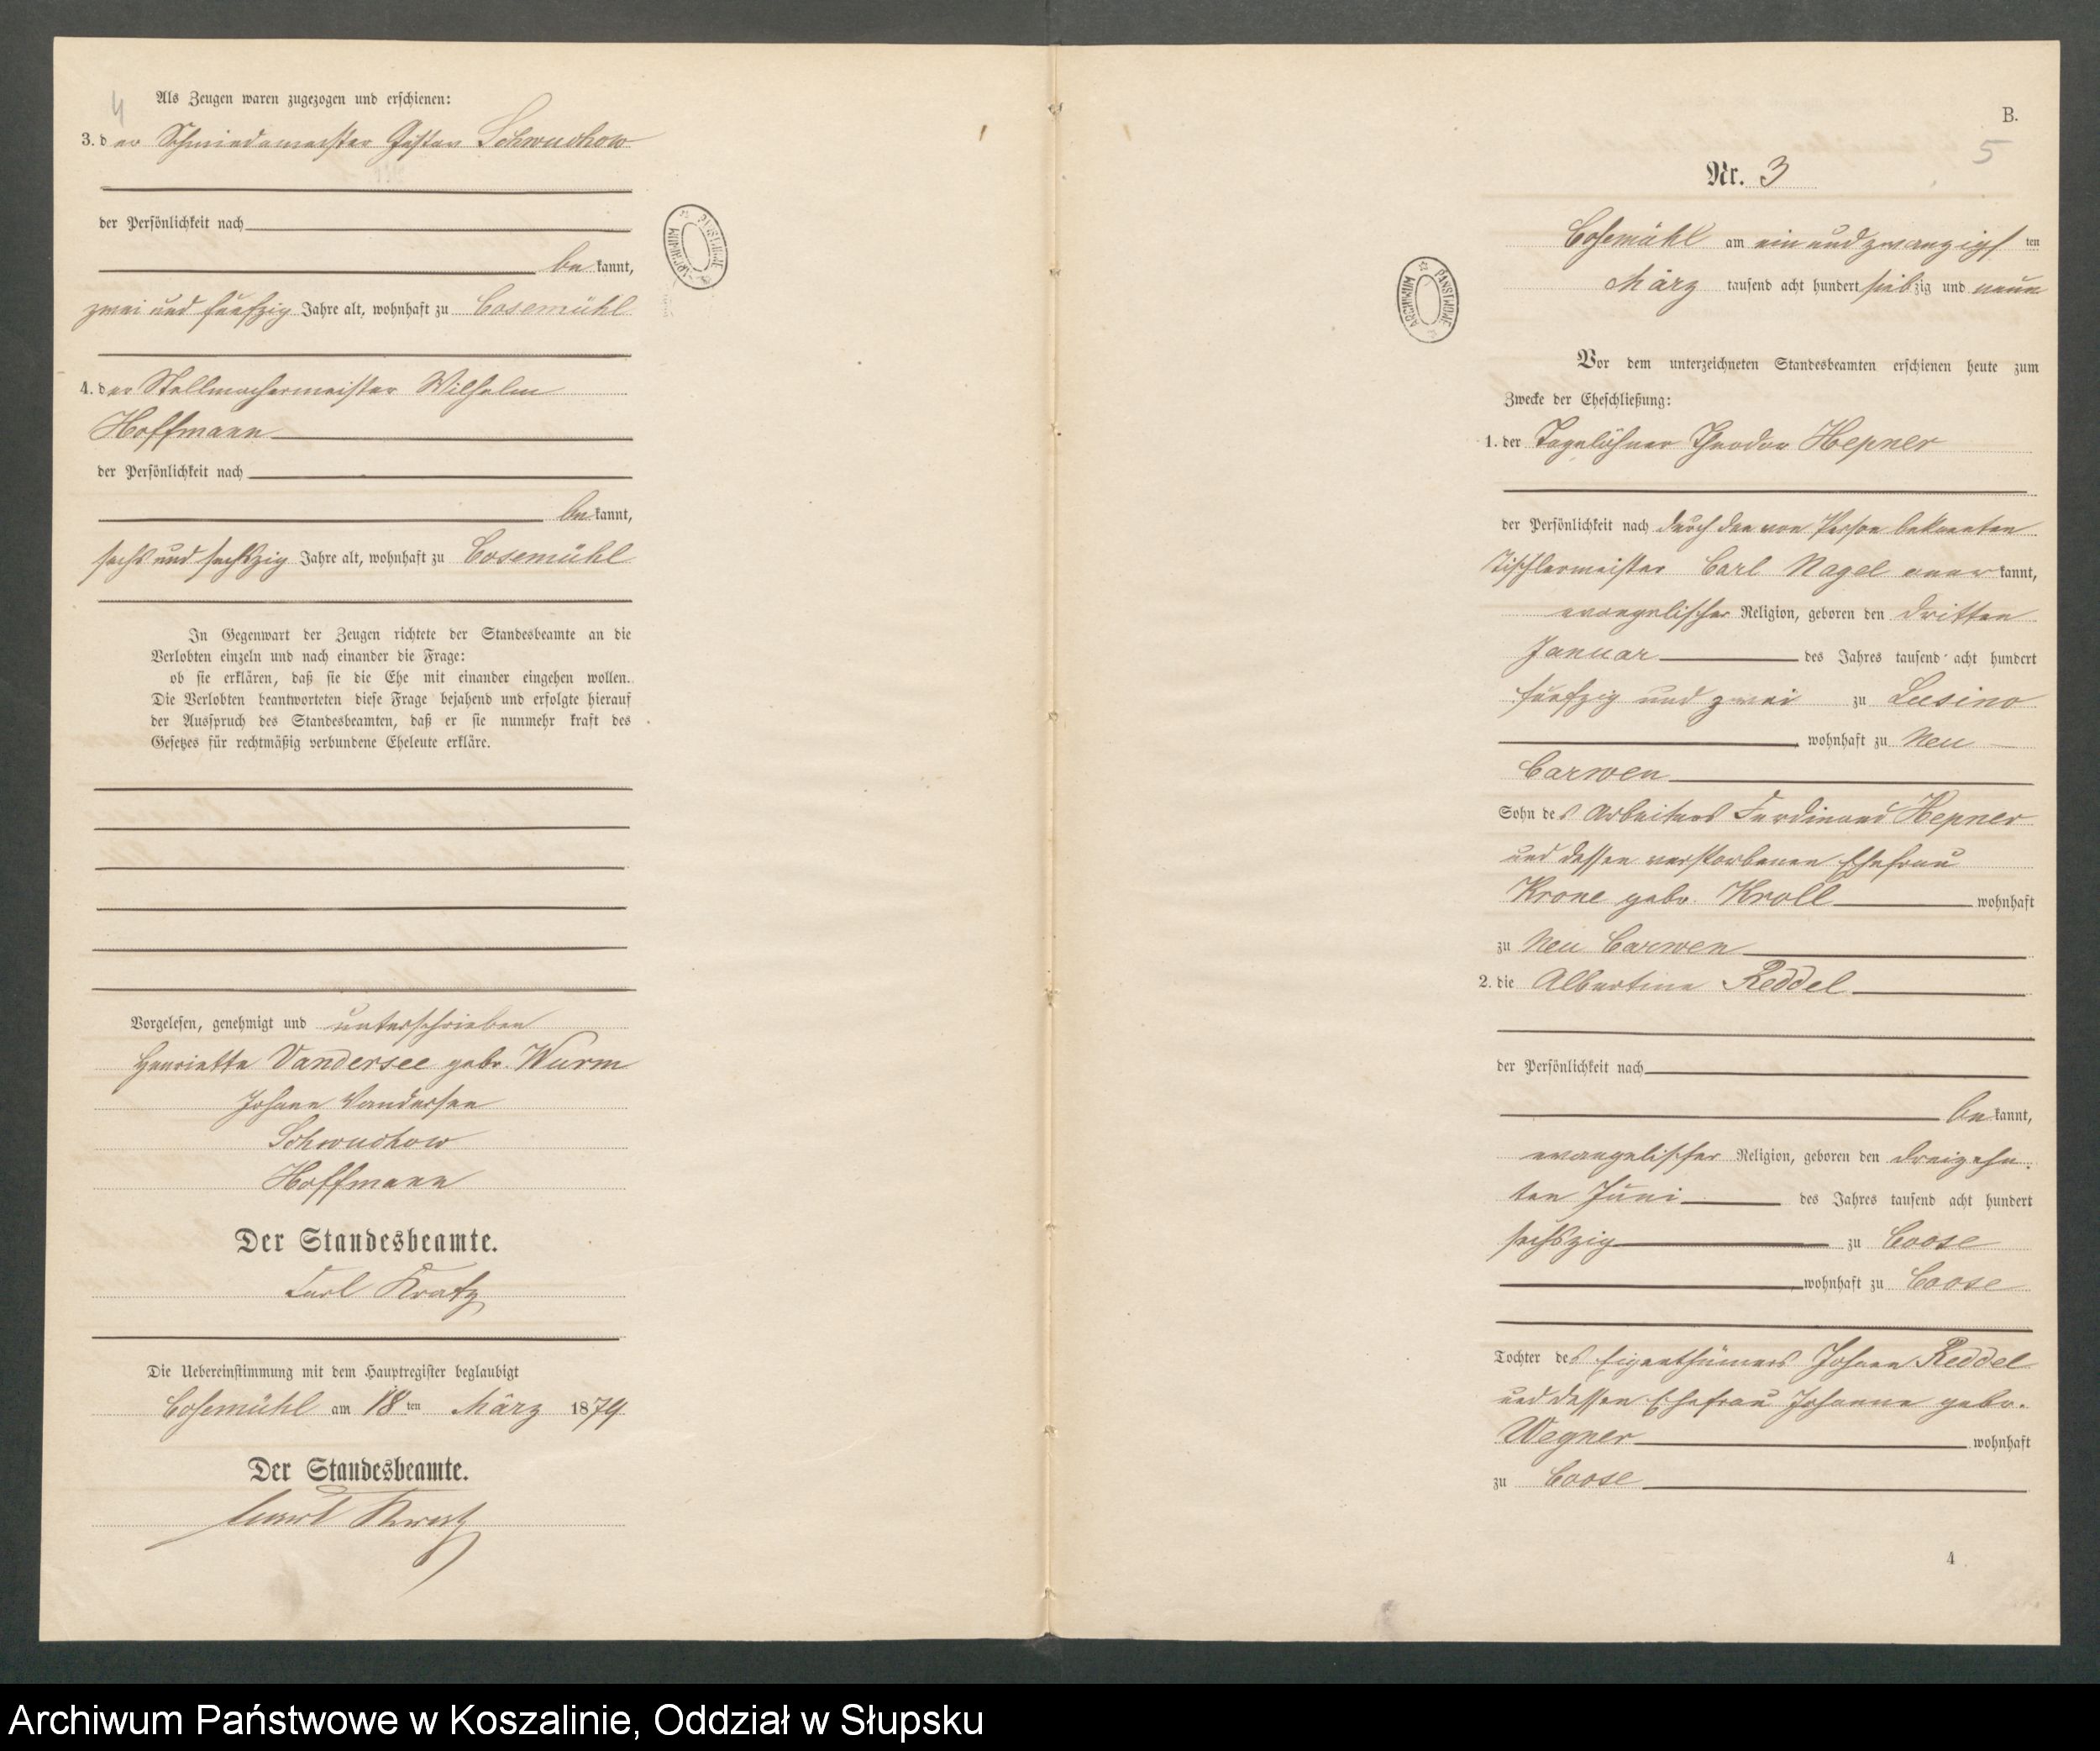 4
Als Zeugen waren zugezogen und erschienen:
3. der Schmiedemeister Gustav Schwuchow
der Persönlichkeit nach
be kannt,
zwei und fünfzig Jahre alt, wohnhaft zu Cosemühl
4. der Stellmachermeister Wilhelm
Hoffmann
der Persönlichkeit nach
be kannt,
sechs und sechszig Jahre alt, wohnhaft zu Cosemühl
In Gegenwart der Zeugen richtete der Standesbeamte an die
Verlobten einzeln und nach einander die Frage:
ob sie erklären, daß sie die Ehe mit einander eingehen wollen.
Die Verlobten beantworteten diese Frage bejahend und erfolgte hierauf
der Ausspruch des Standesbeamten, daß er sie nunmehr kraft des
Gesetzes für rechtmäßig verbundene Eheleute erkläre.
Vorgelesen, genehmigt und unterschrieben
Henriette Vandersee gebr. Wurm
Johann Vandersee
Schwuchow
Hoffmann
Der Standesbeamte.
Carl Kratz
Die Uebereinstimmung mit dem Hauptregister beglaubigt
Cosemühl am 18 ten März 1879
Der Standesbeamte.
Carl Kratz
ARCHIWUM PAŃSTWOWE
B.
5
Nr. 3
Cosemühl am ein und zwanzigs ten
März tausend acht hundert siebzig und neun
Vor dem unterzeichneten Standesbeamten erschienen heute zum
Zwecke der Eheschließung:
1. der Tagelöhner Theodor Hepner
der Persönlichkeit nach durch den von Person bekannten
Tischlermeister Carl Nagel aner kannt,
evangelischer Religion, geboren den dritten
Januar des Jahres tausend acht hundert
fünfzig und zwei zu Lusino
wohnhaft zu Neu
Carwen
Sohn des Arbeiters Ferdinand Hepner
und dessen verstorbenen Ehefrau
Krone gebr. Kroll wohnhaft
zu Neu Carwen
2. die Albertine Reddel
der Persönlichkeit nach
be kannt,
evangelischer Religion, geboren den dreizehn
ten Juni des Jahres tausend acht hundert
sechszig zu Coose
wohnhaft zu Coose
Tochter des Eigenthümers Johann Reddel
und dessen Ehefrau Johanne gebr.
Wegner wohnhaft
zu Coose
4
ARCHIWUM PAŃSTWOWE
Archiwum Państwowe w Koszalinie, Oddział w Słupsku